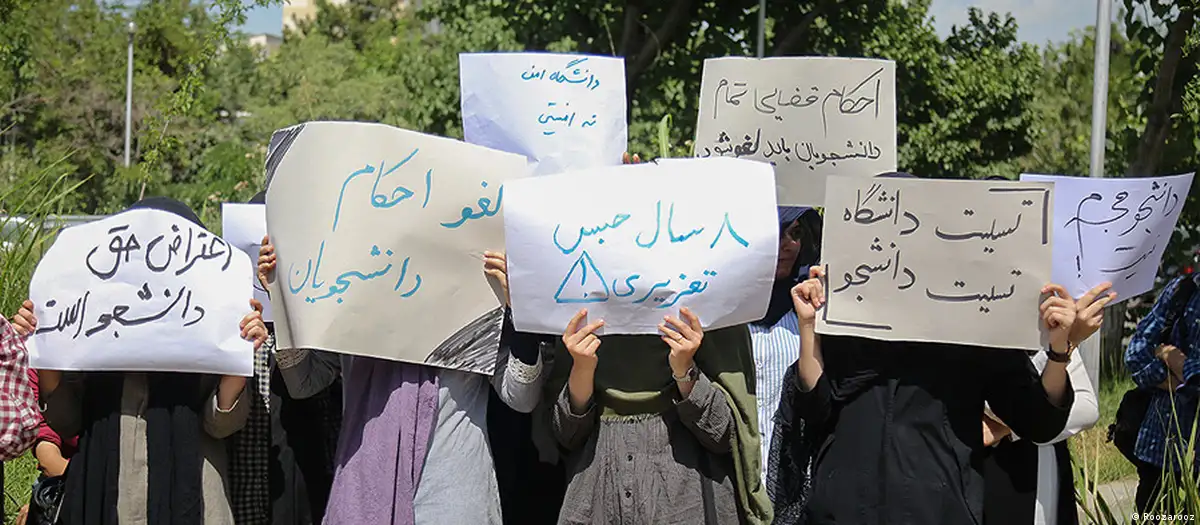 اعتراض حق
دانشجو است
لغو احکام
دانشجویان
دانشگاه امن
نه امنیتی
۸ سال حبس
تعزیری !
احکام قضایی تمام
دانشجویان باید لغو شود.
تسلیت دانشگاه
تسلیت دانشجو
دانشجو مجرم
نیست !
© Roozarooz